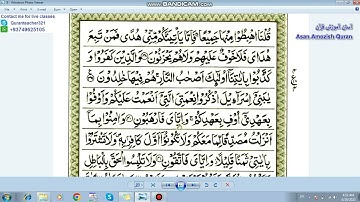 www.BANDICAM.com
Contact me for live classes
Quranteacher321
+93749625105
آسان آموزش قرآن
Asan Amozish Quran
قُلْنَا اهْبِطُوْا مِنْهَا جَمِيْعًا ۚ فَاِمَّا يَاْتِيَنَّكُمْ مِّنِّيْ هُدًى فَمَنْ تَبِعَ
هُدَايَ فَلَا خَوْفٌ عَلَيْهِمْ وَلَا هُمْ يَحْزَنُوْنَ وَالَّذِيْنَ كَفَرُوْا وَ
كَذَّبُوْا بِاٰيٰتِنَآ اُولٰٓئِكَ اَصْحٰبُ النَّارِ ۚ هُمْ فِيْهَا خٰلِدُوْنَ
يٰبَنِيْٓ اِسْرَآءِيْلَ اذْكُرُوْا نِعْمَتِيَ الَّتِيْٓ اَنْعَمْتُ عَلَيْكُمْ وَاَوْفُوْا
بِعَهْدِيْٓ اُوْفِ بِعَهْدِكُمْ ۚ وَاِيَّايَ فَارْهَبُوْنِ وَاٰمِنُوْا بِمَآ
اَنْزَلْتُ مُصَدِّقًا لِّمَا مَعَكُمْ وَلَا تَكُوْنُوْٓا اَوَّلَ كَافِرٍۭ بِهٖ ۪ وَلَا تَشْتَرُوْا
بِاٰيٰتِيْ ثَمَنًا قَلِيْلًا ۫ وَّاِيَّايَ فَاتَّقُوْنِ وَلَا تَلْبِسُوا الْحَقَّ بِالْبَاطِلِ